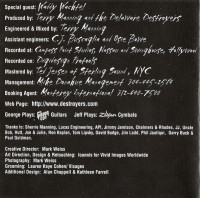 Special guest: Waddy Wachtel
Produced by: Terry Manning and the Delaware Destroyers
Engineered & Mixed by: Terry Manning
Assistant engineers: C.J. Buscaglia and Ose Bave
Recorded at: Compass Point Studios, Nassau and Soundhouse, Hollywood
Recorded on:
Mastered by: Ted Jensen at Sterling Sound, NYC
Management: Mike Donahue Management
Booking Agent: Monterey International 312-640-7500
Web Page: http://www.destroyers.com
George Plays: Guitars Jeff Plays: Zildjian Cymbals
Thanks to: Sherrie Manning, Lucas Engineering, API, Jimmy Jamison, Chalmers & Rhodes,
Hutt, Joe & Julie, Ron Kaplan, Tom Lipsky, David Budge, Jim Ladd, Phil Jaurigui, Gerry Beck &
Paul Goldman.
Creative Director: Mark Weiss
Art Direction, Design & Retouching: Icononis for Vivid Images Worldwide
Photography: Mark Weiss
Grooming: Lauren Kaye Cohen/ Visages
Additional Design: Alan Chappell & Kathleen Farrell